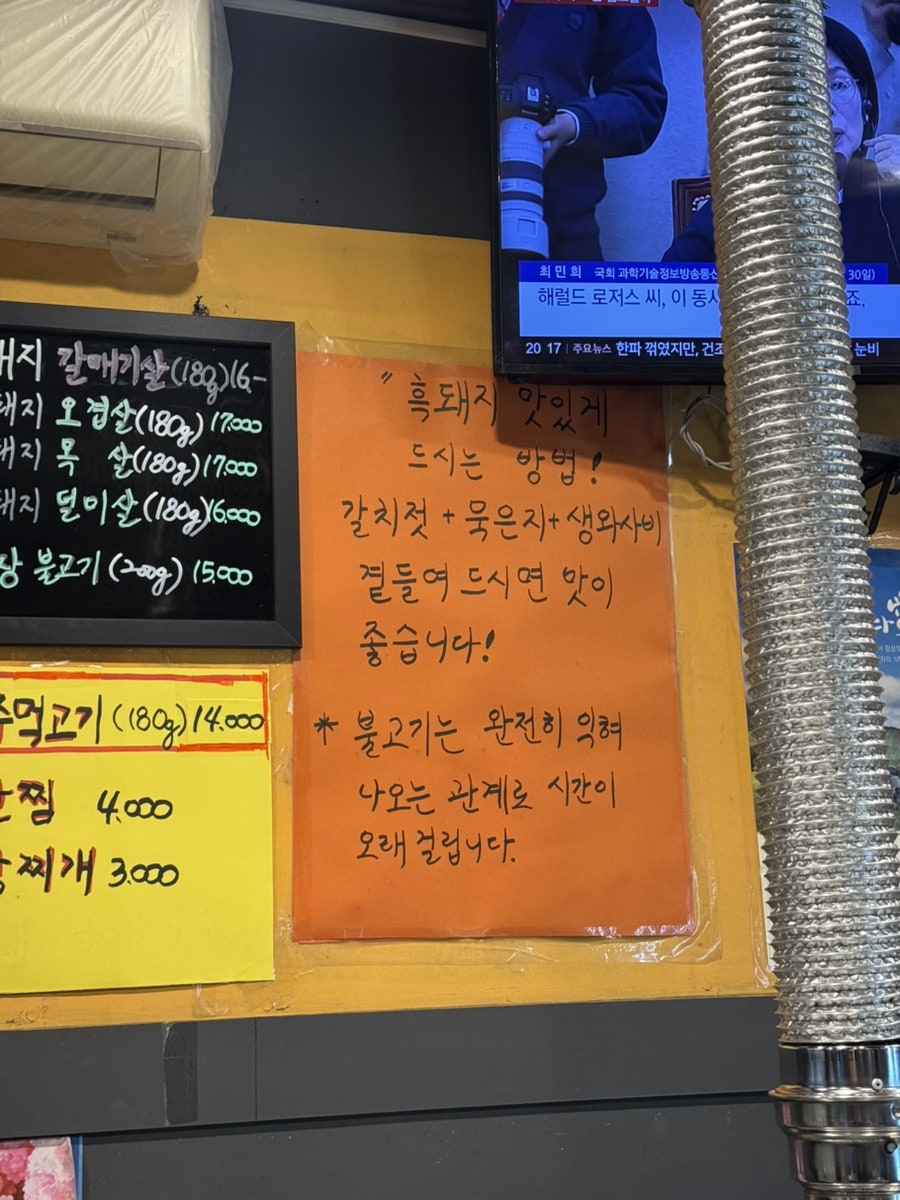 최민희 국회 과학기술정보방송통신 30일)
해럴드 로저스 씨, 이 동사 죠.
20 17 주요뉴스 한파 꺾였지만, 건조 눈비
돼지 갈매기살(180g)16,-
돼지 오겹살(180g) 17.000
돼지 목 살(180g) 17.000
돼지 덜미살(180g)16.000
장 불고기(200g) 15.000
주먹고기(180g) 14.000
찜 4.000
찌개 3.000
"흑돼지 맛있게
드시는 방법!
갈치젓 + 묵은지+ 생와사비
곁들여 드시면 맛이
좋습니다!
* 불고기는 완전히 익혀
나오는 관계로 시간이
오래 걸립니다.